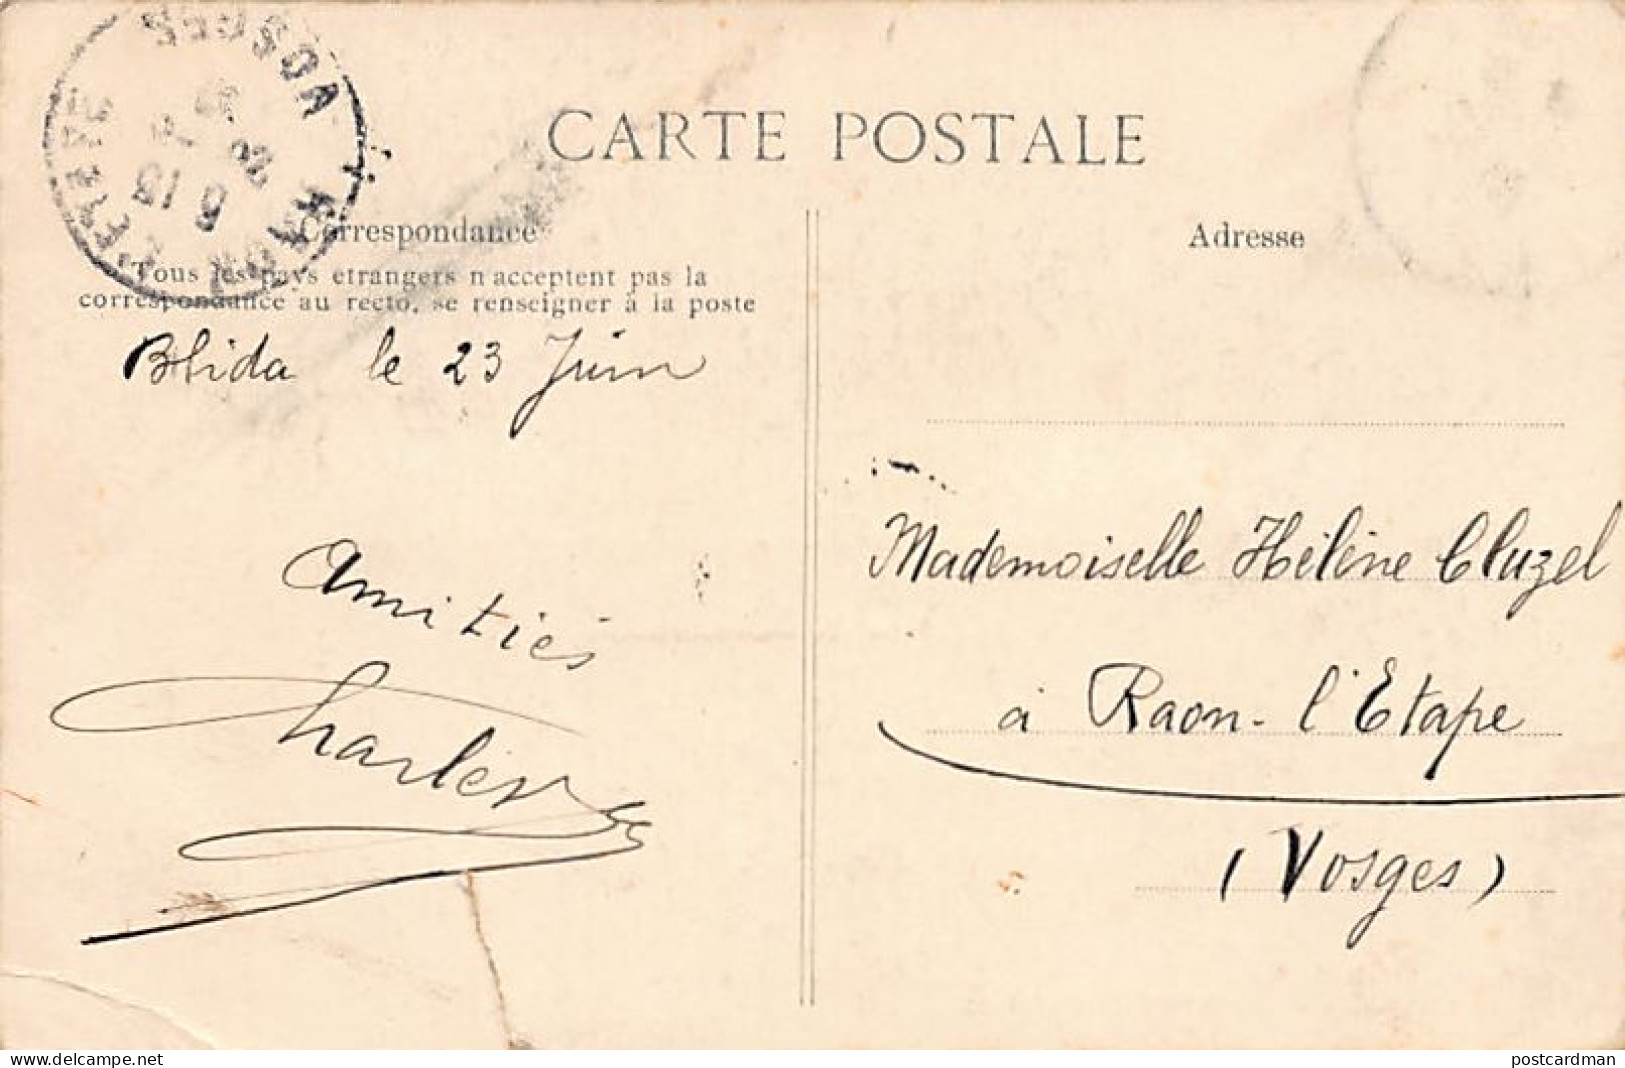 CARTE POSTALE
Correspondance
Tous les pays etrangers n'acceptent pas la
correspondance au recto, se renseigner à la poste
Blida le 23 Juin
Amitiés
Adresse
Mademoiselle Hélène Cluzel
à Raon-l'Etape
(Vosges)
RAON L'ETAPE
VOSGES
www.delcampe.net
postcardman